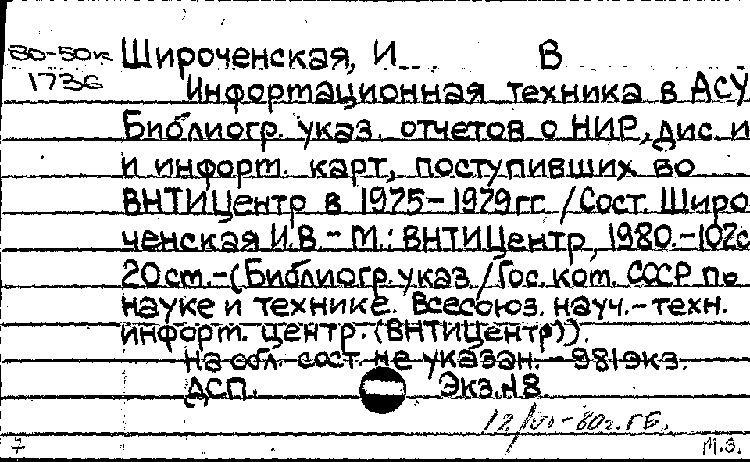 80-50к Широченская, И. В
1736
Информационная техника в АСУ
Библиогр. указ. отчетов о НИР, дис. и
и информ. карт, поступивших во
ВНТИЦентр в 1975-1979гг. /Сост. Широ
ченская И.В.- М.: ВНТИЦентр, 1980.-102с
20см.-(Библиогр. указ./Гос. ком. СССР по
науке и технике. Всесоюз. науч.-техн.
информ. центр. (ВНТИЦентр)).
На обл. сост. не указан. - 981экз.
ДСП. Экз.N8
12/VI-80г. ГБ.
7 М.З.